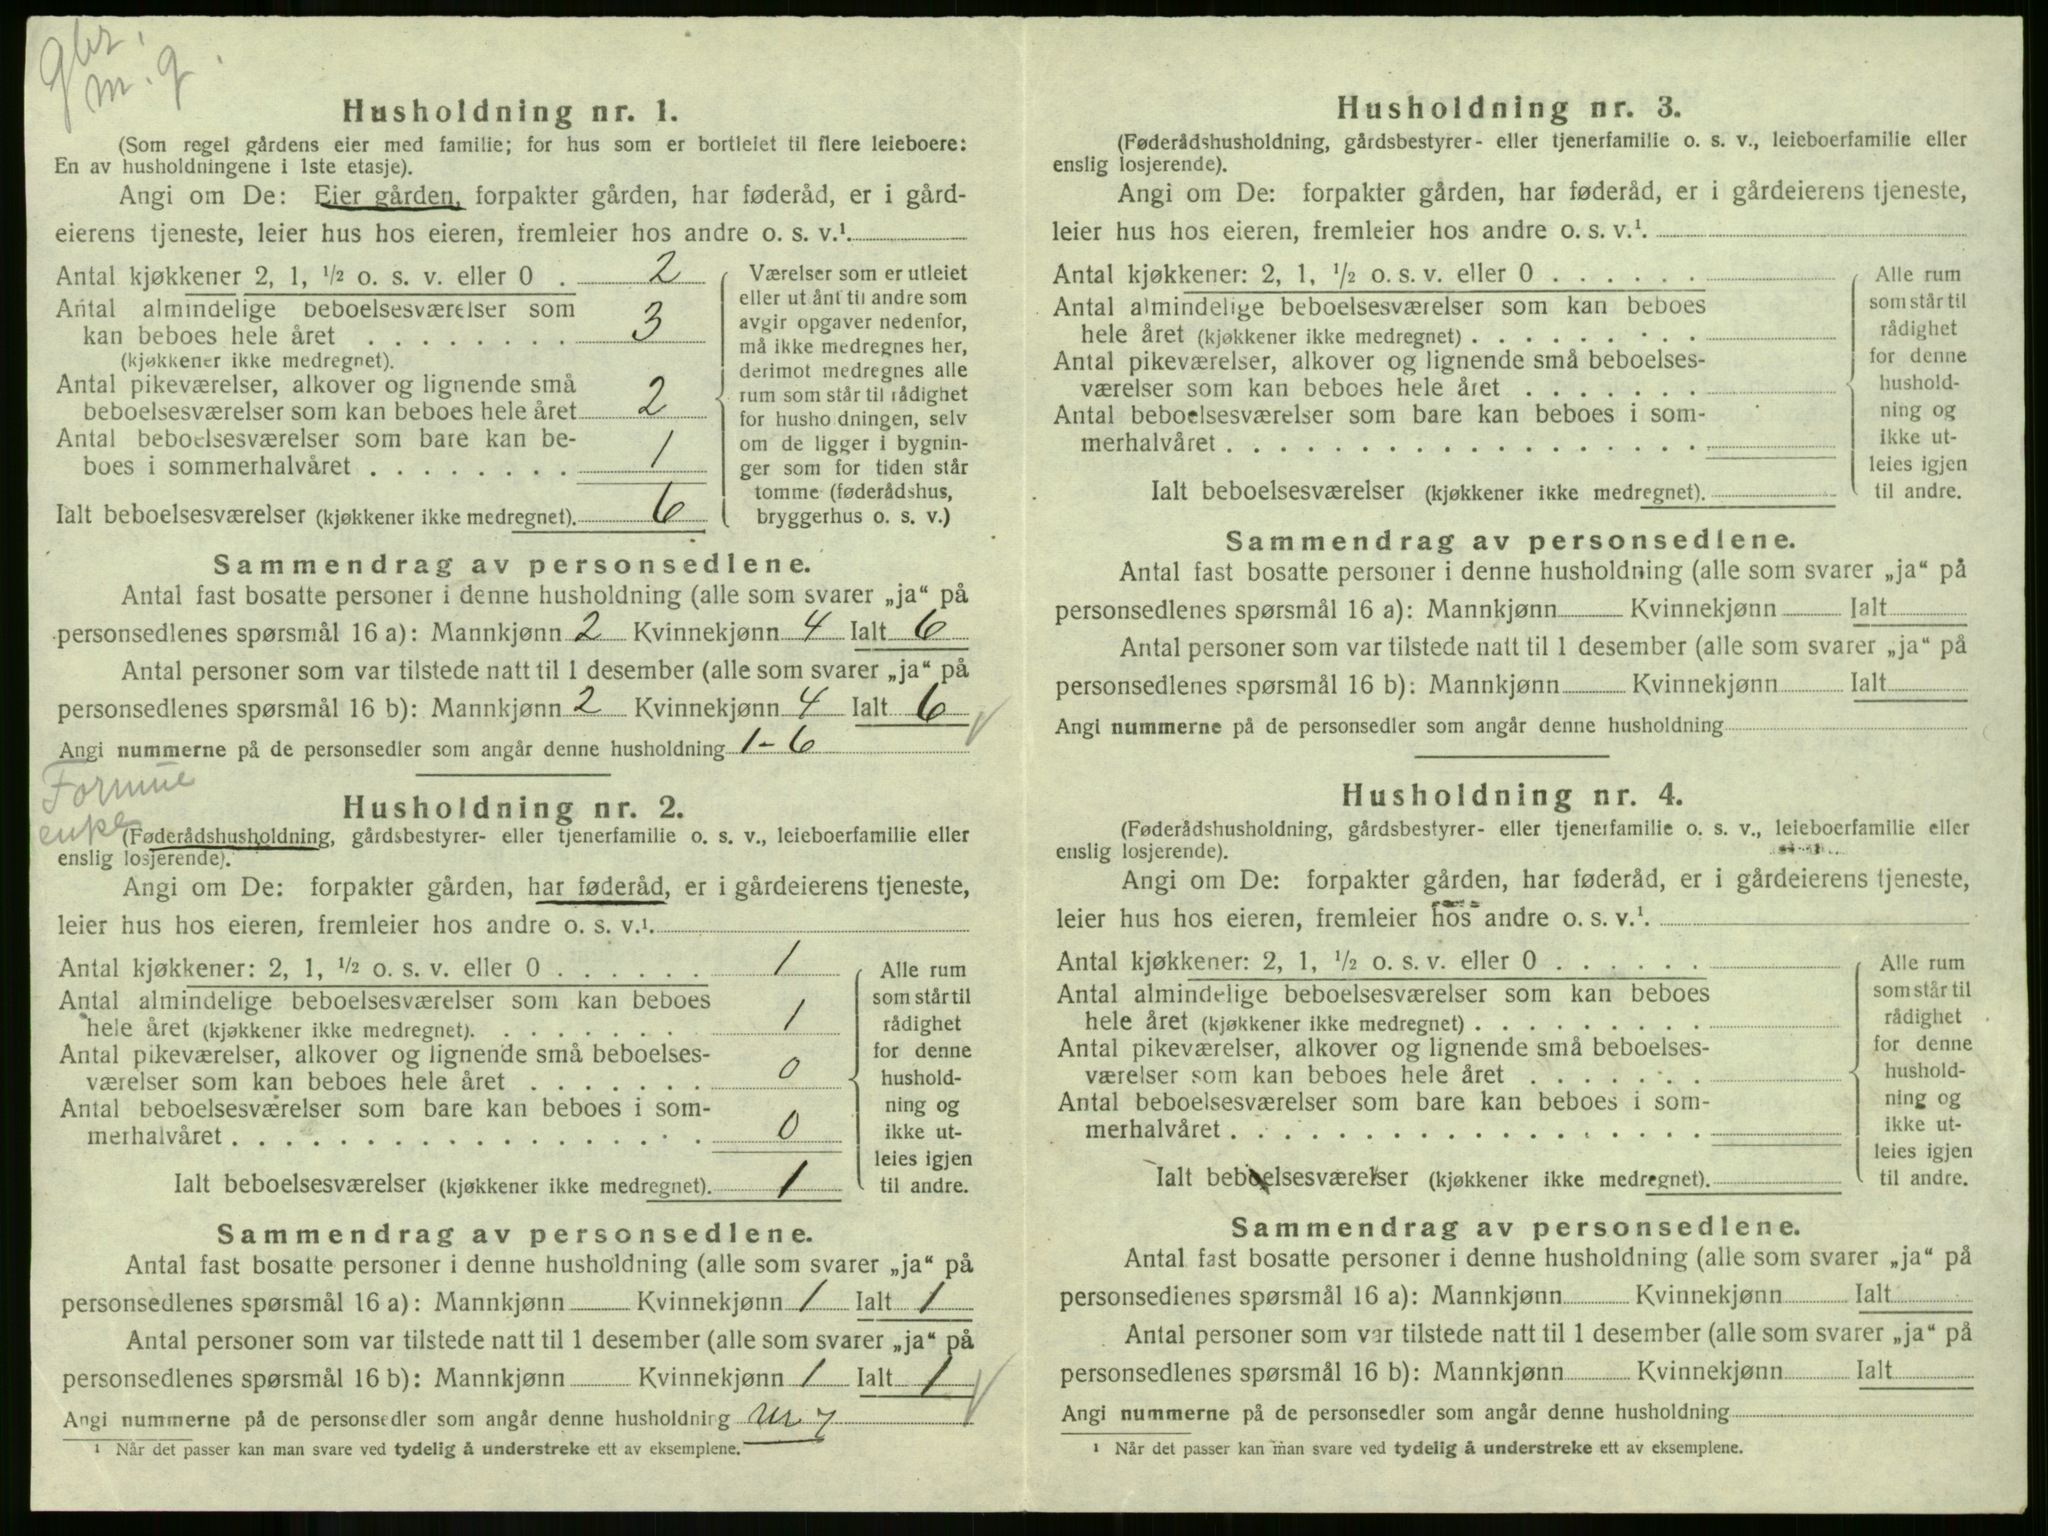 gbr.
m. g.
Husholdning nr. 1.
(Som regel gårdens eier med familie; for hus som er bortleiet til flere leieboere:
En av husholdningene i 1ste etasje).
Angi om De: Eier gården, forpakter gården, har føderåd, er i gård-
eierens tjeneste, leier hus hos eieren, fremleier hos andre o. s. v.¹.
Antal kjøkkener 2, 1, ½ o. s. v. eller 0 . 2
Antal almindelige beboelsesværelser som
kan beboes hele året . . . . . . . . . 3
(kjøkkener ikke medregnet).
Antal pikeværelser, alkover og lignende små
beboelsesværelser som kan beboes hele året 2
Antal beboelsesværelser som bare kan be-
boes i sommerhalvåret . . . . . . . . 1
Ialt beboelsesværelser (kjøkkener ikke medregnet). 6
Værelser som er utleiet
eller ut ånt til andre som
avgir opgaver nedenfor,
må ikke medregnes her,
derimot medregnes alle
rum som står til rådighet
for husho dningen, selv
om de ligger i bygnin-
ger som for tiden står
tomme (føderådshus,
bryggerhus o. s. v.)
Sammendrag av personsedlene.
Antal fast bosatte personer i denne husholdning (alle som svarer „ja“ på
personsedlenes spørsmål 16 a): Mannkjønn 2 Kvinnekjønn 4 Ialt 6
Antal personer som var tilstede natt til 1 desember (alle som svarer „ja“ på
personsedlenes spørsmål 16 b): Mannkjønn 2 Kvinnekjønn 4 Ialt 6
Angi nummerne på de personsedler som angår denne husholdning 1-6
Formue
enke
Husholdning nr. 2.
(Føderådshusholdning, gårdsbestyrer- eller tjenerfamilie o. s. v., leieboerfamilie eller
enslig losjerende).
Angi om De: forpakter gården, har føderåd, er i gårdeierens tjeneste,
leier hus hos eieren, fremleier hos andre o. s. v.¹.
Antal kjøkkener: 2, 1, ½ o. s. v. eller 0 . . . . . . 1
Antal almindelige beboelsesværelser som kan beboes
hele året (kjøkkener ikke medregnet). . . . . . . . 1
Antal pikeværelser, alkover og lignende små beboelses-
værelser som kan beboes hele året . . . . . . . 0
Antal beboelsesværelser som bare kan beboes i som-
merhalvåret . . . . . . . . . . . . . . . . . . 0
Ialt beboelsesværelser (kjøkkener ikke medregnet). 1
Alle rum
som står til
rådighet
for denne
hushold-
ning og
ikke ut-
leies igjen
til andre.
Sammendrag av personsedlene.
Antal fast bosatte personer i denne husholdning (alle som svarer „ja“ på
personsedlenes spørsmål 16 a): Mannkjønn Kvinnekjønn 1 Ialt 1
Antal personer som var tilstede natt til 1 desember (alle som svarer „ja“ på
personsedlenes spørsmål 16 b): Mannkjønn Kvinnekjønn 1 Ialt 1
Angi nummerne på de personsedler som angår denne husholdning nr 7
¹ Når det passer kan man svare ved tydelig å understreke ett av eksemplene.
Husholdning nr. 3.
(Føderådshusholdning, gårdsbestyrer- eller tjenerfamilie o. s. v., leieboerfamilie eller
enslig losjerende).
Angi om De: forpakter gården, har føderåd, er i gårdeierens tjeneste,
leier hus hos eieren, fremleier hos andre o. s. v.¹.
Antal kjøkkener: 2, 1, ½ o. s. v. eller 0 . . . . . .
Antal almindelige beboelsesværelser som kan beboes
hele året (kjøkkener ikke medregnet) . . . . . . . . .
Antal pikeværelser, alkover og lignende små beboelses-
værelser som kan beboes hele året . . . . . . .
Antal beboelsesværelser som bare kan beboes i som-
merhalvåret . . . . . . . . . . . . . . . . . .
Ialt beboelsesværelser (kjøkkener ikke medregnet).
Alle rum
som står til
rådighet
for denne
hushold-
ning og
ikke ut-
leies igjen
til andre.
Sammendrag av personsedlene.
Antal fast bosatte personer i denne husholdning (alle som svarer „ja“ på
personsedlenes spørsmål 16 a): Mannkjønn Kvinnekjønn Ialt
Antal personer som var tilstede natt til 1 desember (alle som svarer „ja“ på
personsedlenes spørsmål 16 b): Mannkjønn Kvinnekjønn Ialt
Angi nummerne på de personsedler som angår denne husholdning
Husholdning nr. 4.
(Føderådshusholdning, gårdsbestyrer- eller tjenerfamilie o. s. v., leieboerfamilie eller
enslig losjerende).
Angi om De: forpakter gården, har føderåd, er i gårdeierens tjeneste,
leier hus hos eieren, fremleier hos andre o. s. v.¹.
Antal kjøkkener: 2, 1, ½ o. s. v. eller 0 . . . . . .
Antal almindelige beboelsesværelser som kan beboes
hele året (kjøkkener ikke medregnet) . . . . . . . . .
Antal pikeværelser, alkover og lignende små beboelses-
værelser som kan beboes hele året . . . . . . .
Antal beboelsesværelser som bare kan beboes i som-
merhalvåret . . . . . . . . . . . . . . . . . .
Ialt beboelsesværelser (kjøkkener ikke medregnet).
Alle rum
som står til
rådighet
for denne
hushold-
ning og
ikke ut-
leies igjen
til andre.
Sammendrag av personsedlene.
Antal fast bosatte personer i denne husholdning (alle som svarer „ja“ på
personsedlenes spørsmål 16 a): Mannkjønn Kvinnekjønn Ialt
Antal personer som var tilstede natt til 1 desember (alle som svarer „ja“ på
personsedlenes spørsmål 16 b): Mannkjønn Kvinnekjønn Ialt
Angi nummerne på de personsedler som angår denne husholdning
¹ Når det passer kan man svare ved tydelig å understreke ett av eksemplene.